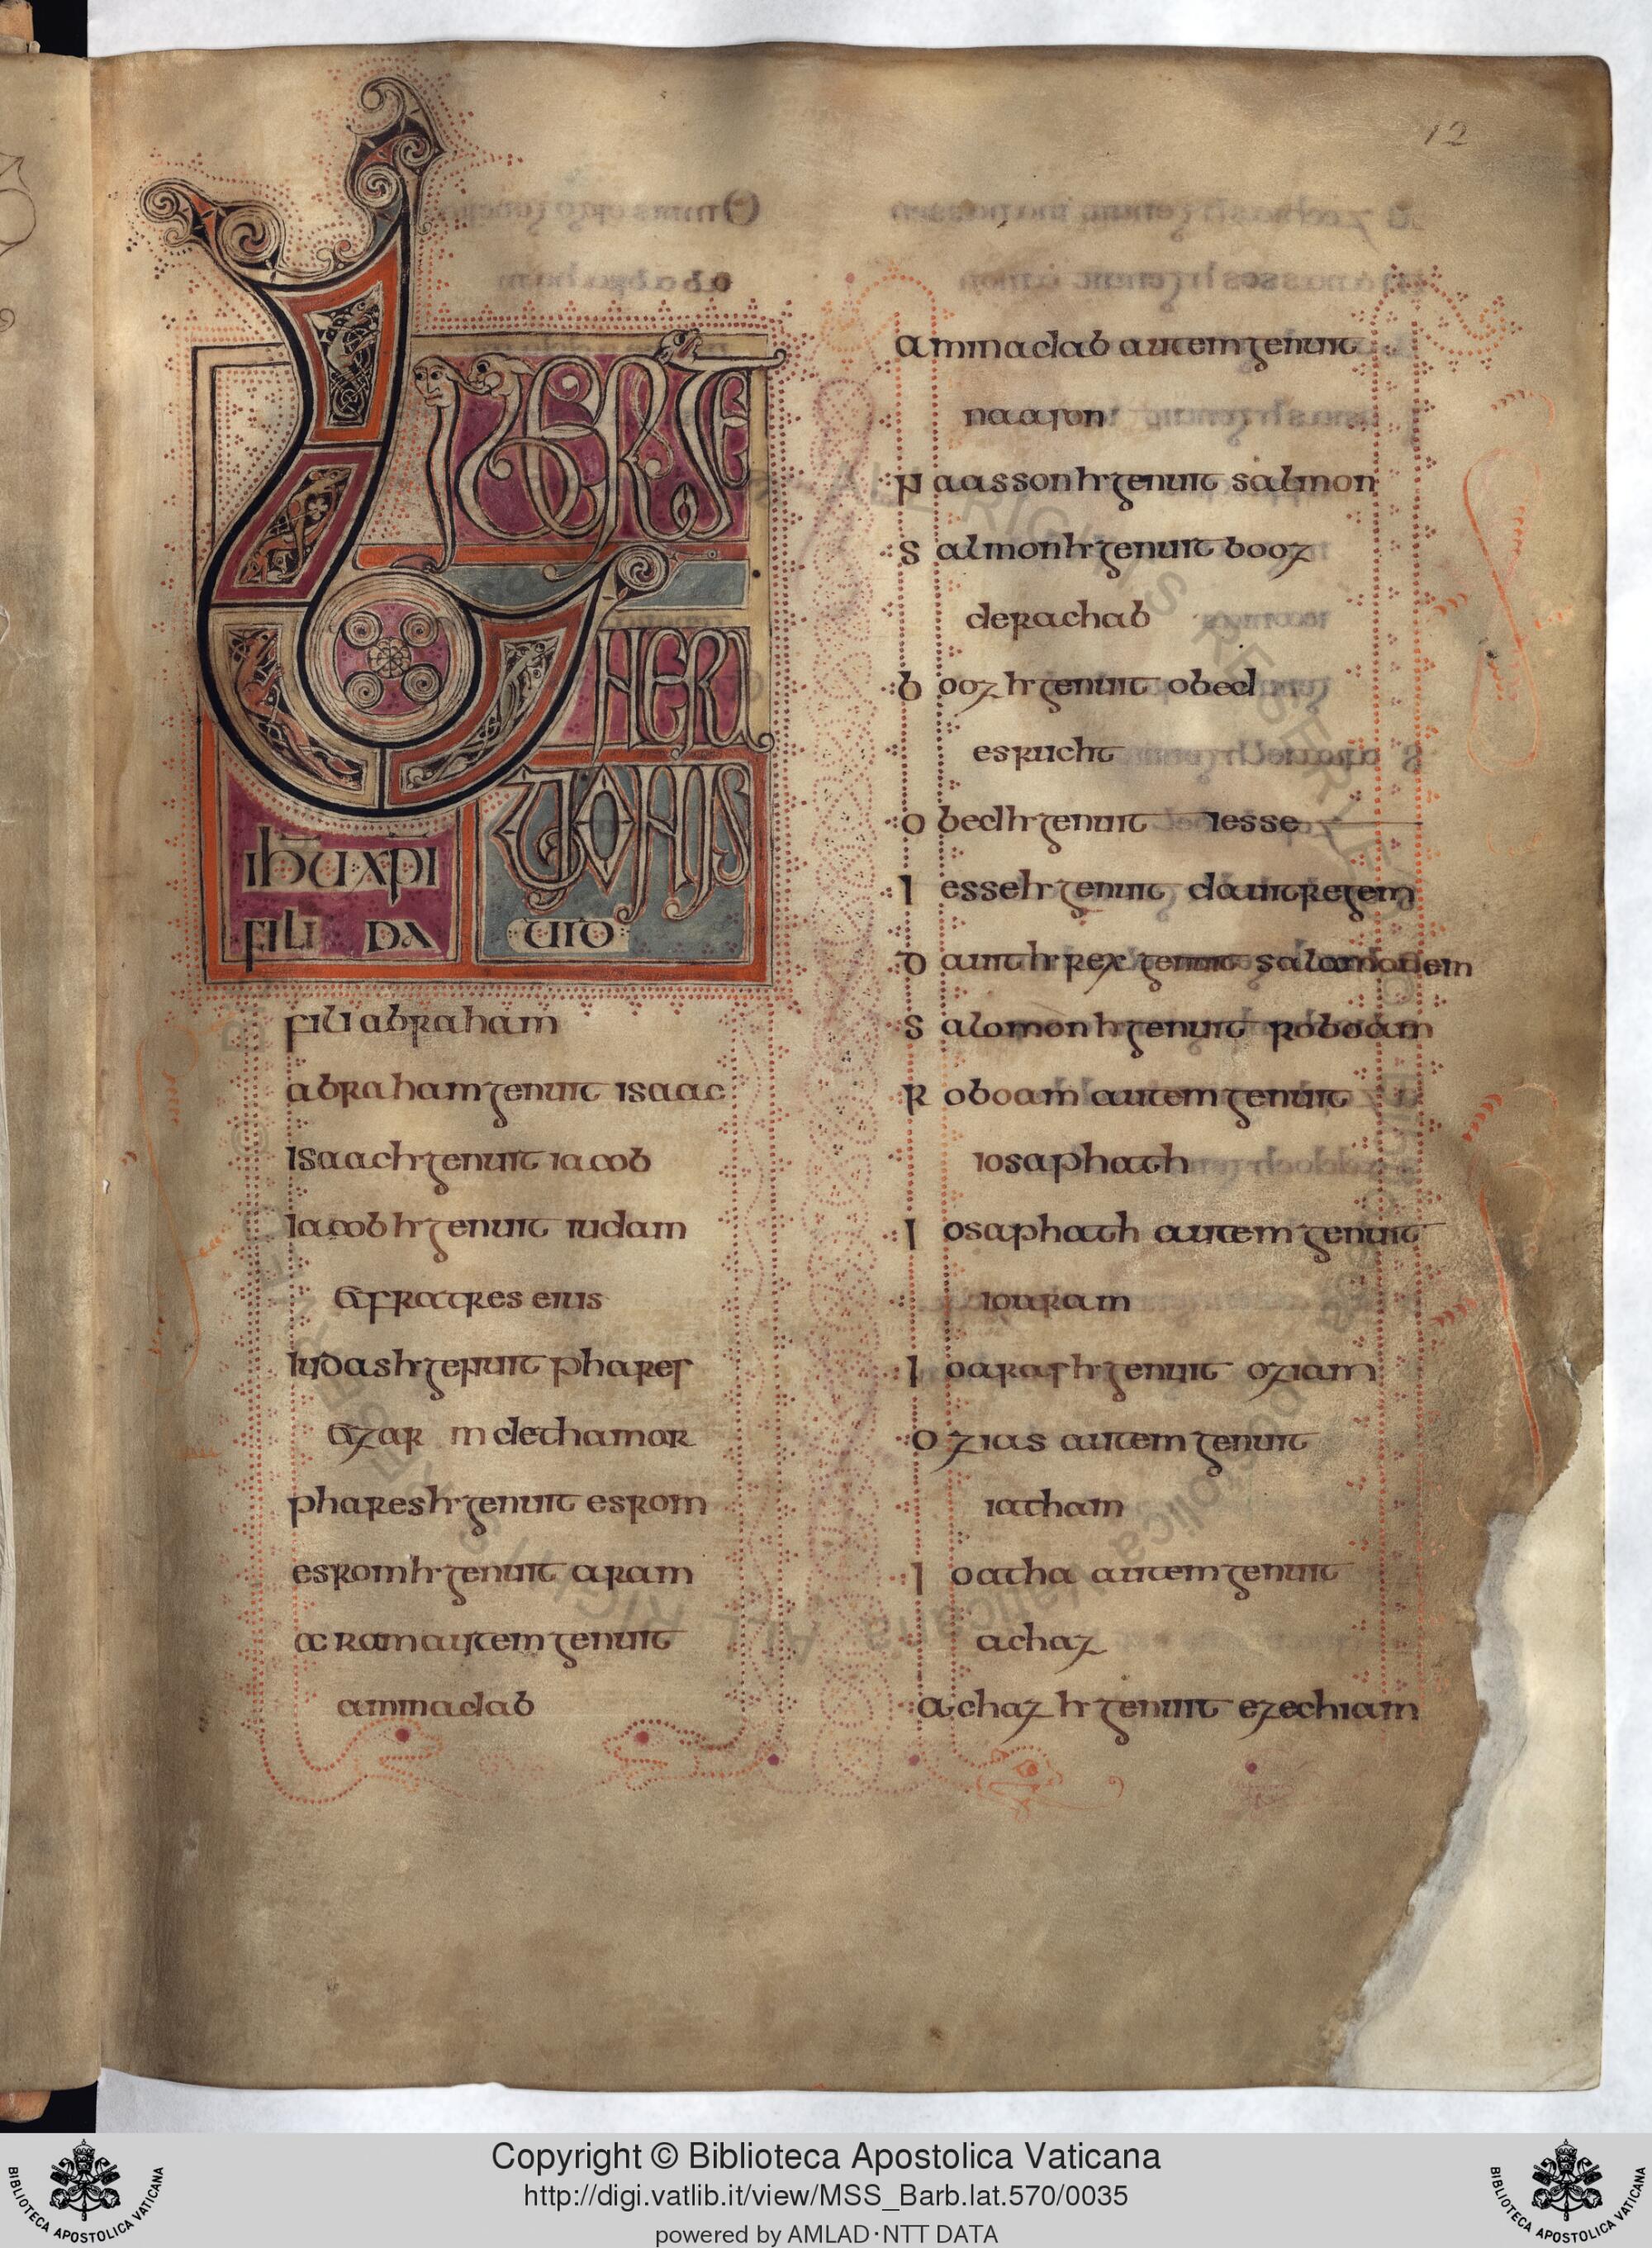 12
LIBER GE
NERA
TIONIS
ihu xpi
fili DA
UID
fili abraham
abraham genuit isaac
Isaac hr genuit iacob
Iacob hr genuit iudam
& fratres eius
Iudas hr genuit phares
& zar m de thamar
phares hr genuit esrom
esrom hr genuit aram
aram autem genuit
aminadab
aminadab autem genuit
naason
Naasson hr genuit salmon
Salmon hr genuit booz
de rachab
booz hr genuit obed
es rucht
Obed hr genuit iesse
Iesse hr genuit dauit regem
Dauit hr rex genuit salomonem
Salomon hr genuit roboam
Roboam autem genuit
iosaphath
Iosaphath autem genuit
iouram
Ioaras hr genuit oziam
Ozias autem genuit
iatham
Ioatha autem genuit
achaz
achaz hr genuit ezechiam
Copyright © Biblioteca Apostolica Vaticana
http://digi.vatlib.it/view/MSS_Barb.lat.570/0035
powered by AMLAD·NTT DATA
BIBLIOTECA APOSTOLICA VATICANA
BIBLIOTECA APOSTOLICA VATICANA